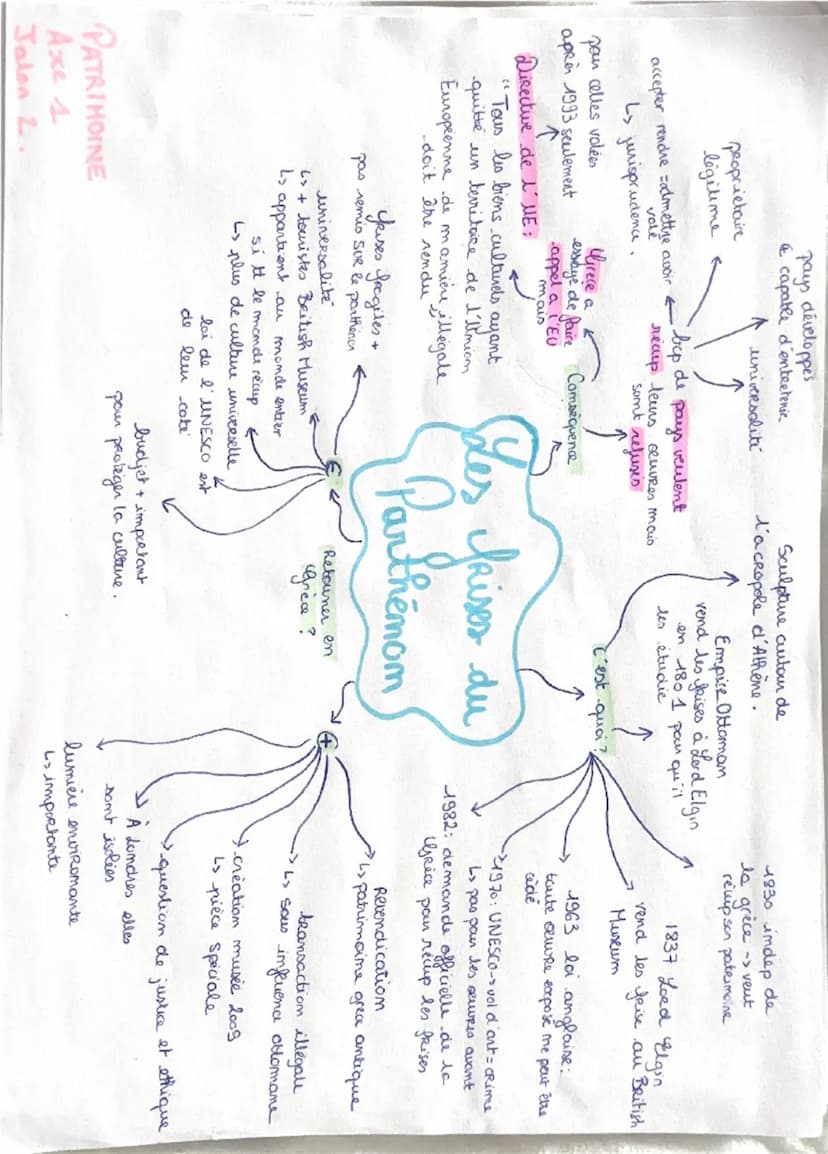 PATRIMOINE
Axe 1
Jalon 2.
Les frises du
Parthénon
C'est quoi ?
Sculpture autour de
l'acropole d'Athène.
Empire Ottoman
vend les frises à Lord Elgin
en 1801 pour qu'il
les étudie
1830 indep de
la grèce → veut
récup son patrimoine
1837 Lord Elgin
vend les frise au British
Museum
1963 loi anglaise :
toute œuvre exposé ne peut être
cédé
1970 : UNESCO → vol d'art = crime
↳ pas pour les œuvres avant
1982 : demande officielle de la
Grèce pour récup les frises
Conséquence
bcp de pays veulent
récup leurs œuvres mais
sont refusés
universalité
pays développés
€ capable d'entretenir
propriétaire
légitime
accepter rendre = admettre avoir
volé
↳ jurisprudence.
Grèce a
essayé de faire
appel à l'EU
mais
Directive de l'UE :
"Tous les biens culturels ayant
quitté un territoire de l'Union
Européenne de manière illégale
doit être rendu"
pour celles volées
après 1993 seulement
Retourner en
Grèce ?
⊕
Revendication
↳ patrimoine grèce antique
transaction illégale
↳ sous influence ottomane
création musée 2009
↳ pièce spéciale
question de justice et éthique
À Londres elles
sont isolées
lumière environnante
↳ importante
frises fragiles +
pas remis sur le parthénon
universalité
↳ + touristes British Museum
↳ appartient au monde entier
si tt le monde récup
↳ plus de culture universelle
loi de l'UNESCO est
de leur coté
budjet + important
pour protéger la culture.